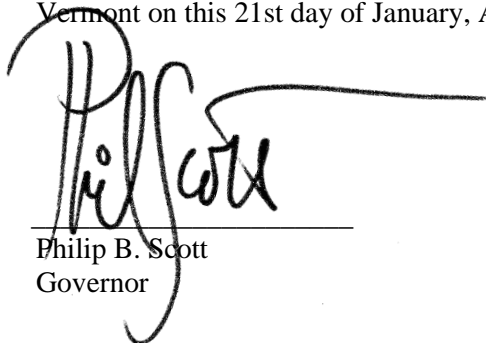 Vermont on this 21st day of January, A
Phil Scott
Philip B. Scott
Governor